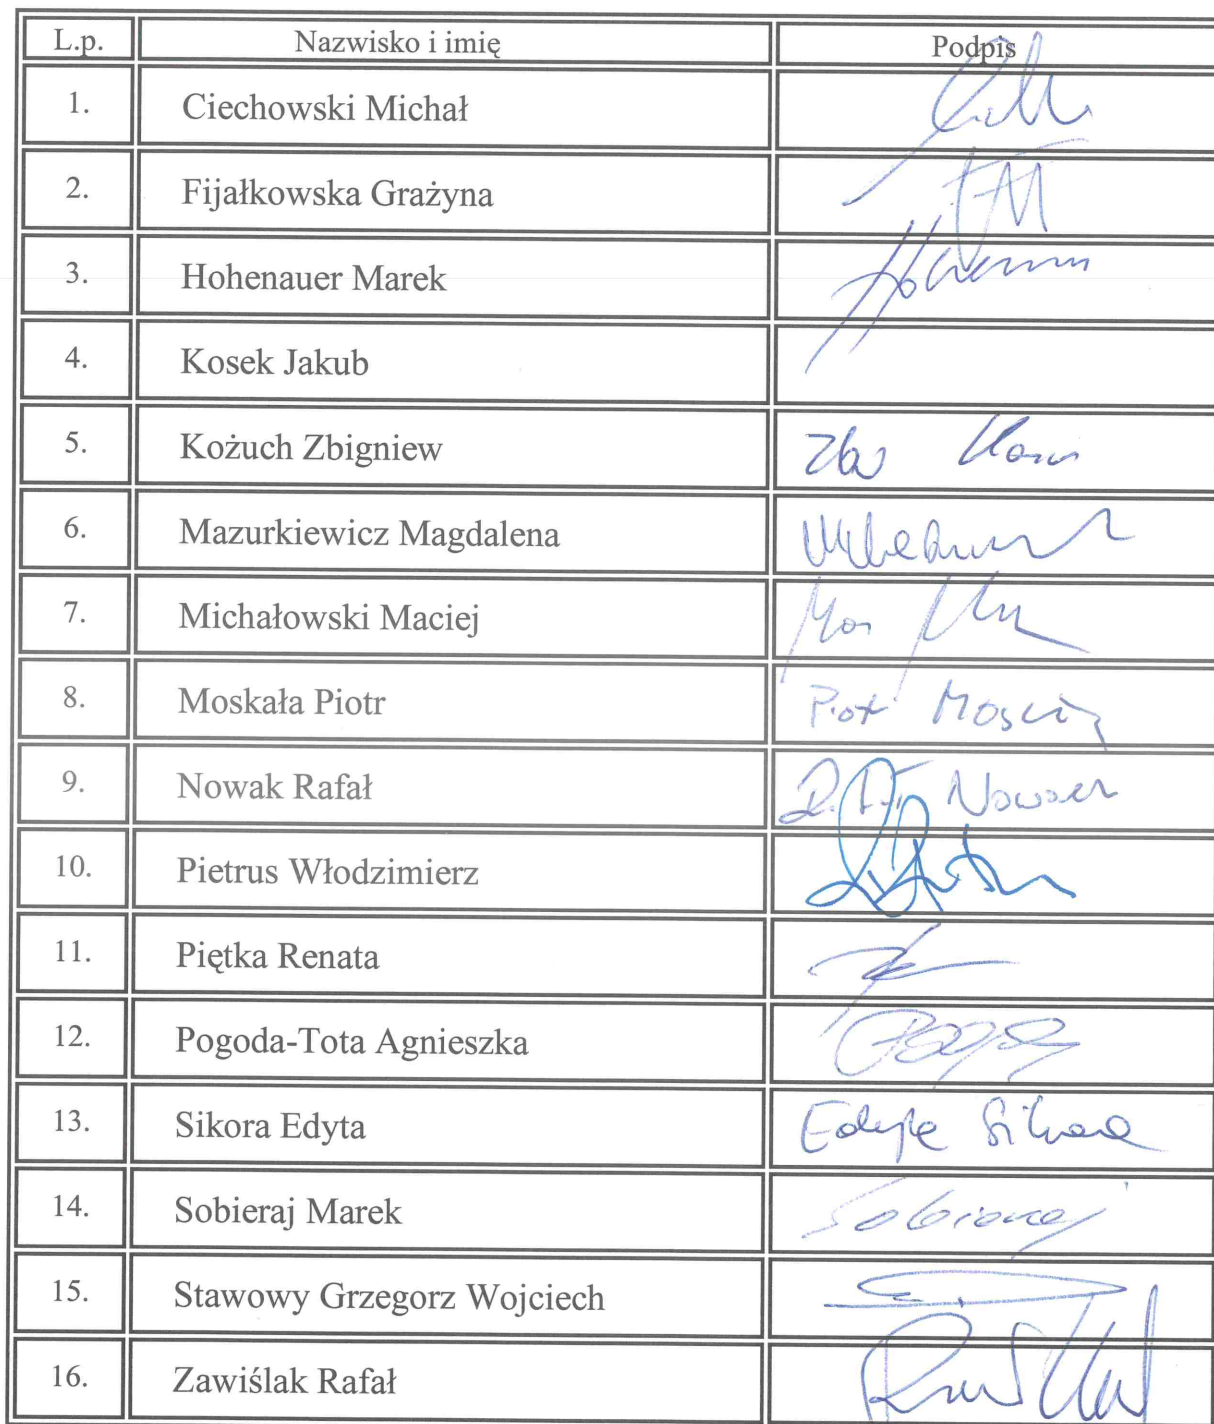 L.p. Nazwisko i imię Podpis
1. Ciechowski Michał
2. Fijałkowska Grażyna
3. Hohenauer Marek
4. Kosek Jakub
5. Kożuch Zbigniew
6. Mazurkiewicz Magdalena
7. Michałowski Maciej
8. Moskała Piotr Piotr
9. Nowak Rafał
10. Pietrus Włodzimierz
11. Piętka Renata
12. Pogoda-Tota Agnieszka
13. Sikora Edyta Edyta Sikora
14. Sobieraj Marek Sobieraj
15. Stawowy Grzegorz Wojciech
16. Zawiślak Rafał